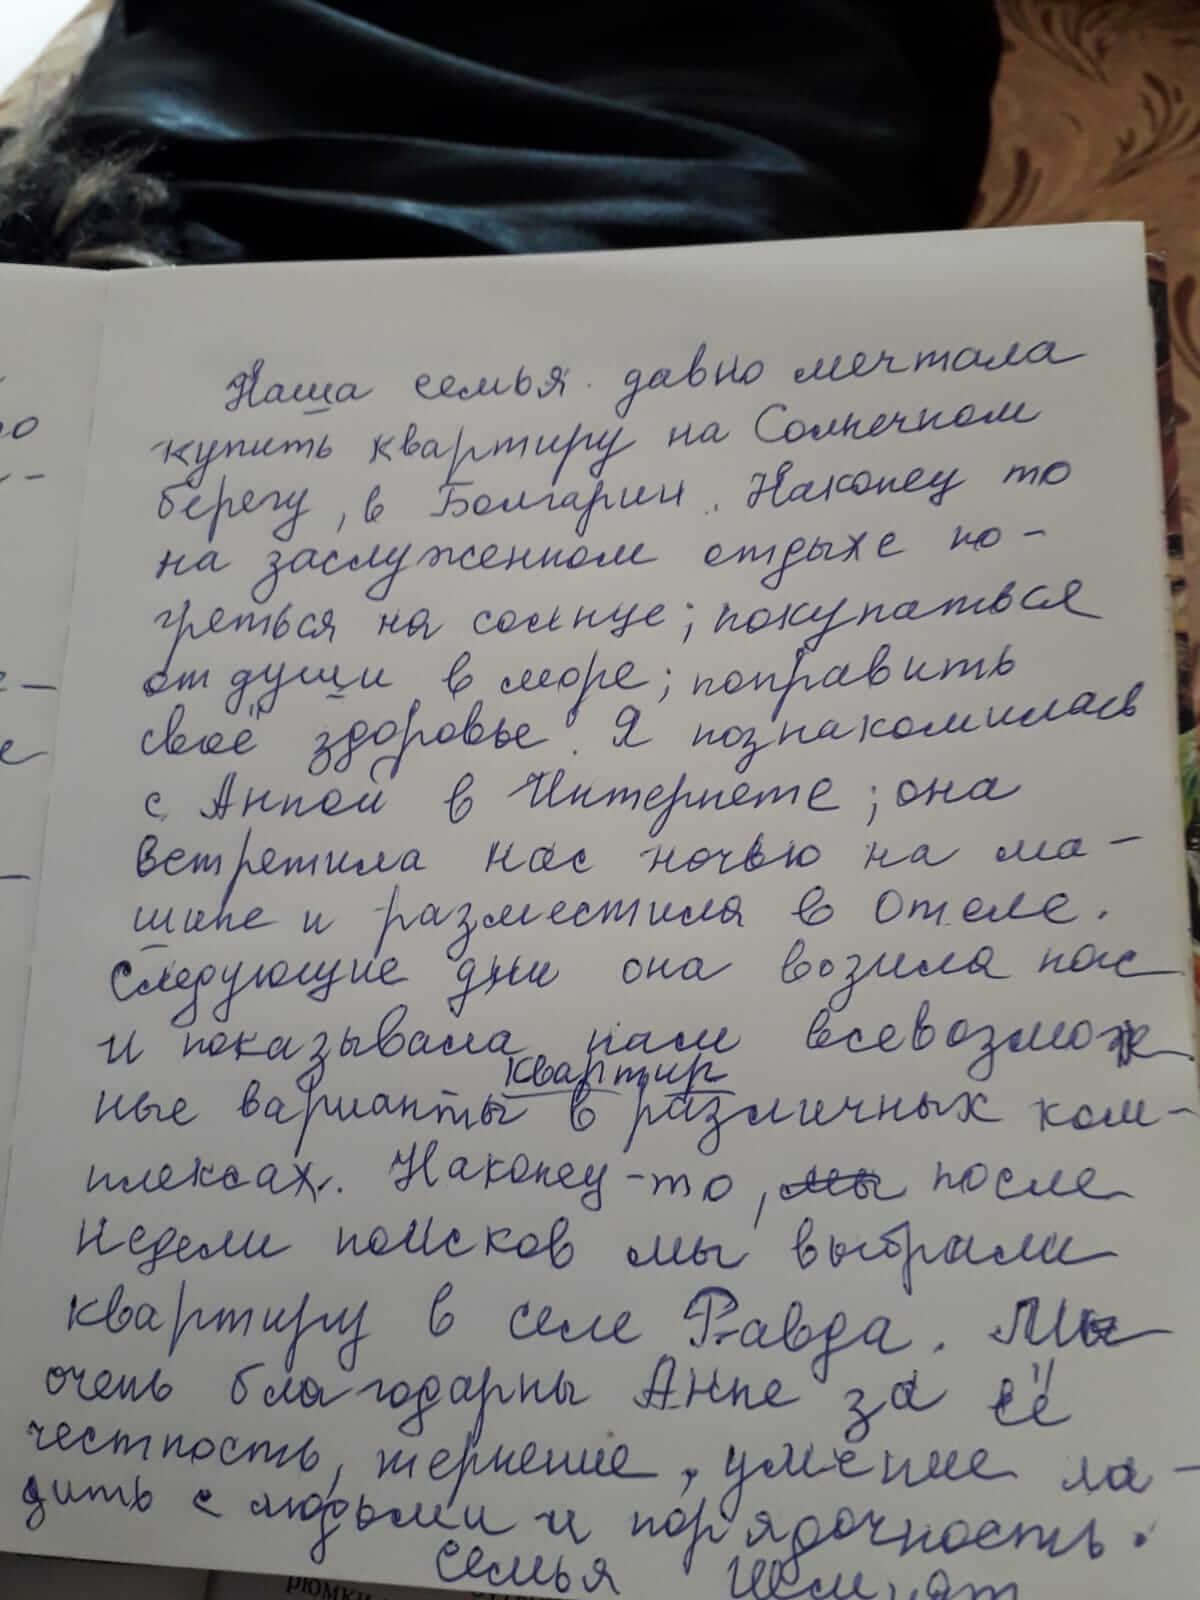 Наша семья давно мечтала
купить квартиру на Солнечном
берегу, в Болгарии. Наконец то
на заслуженном отдыхе по-
греться на солнце; покупаться
от души в море; поправить
своё здоровье. Я познакомилась
с Анной в Интернете; она
встретила нас ночью на ма-
шине и разместила в отеле.
Следующие дни она возила нас
и показывала нам всевозмож
квартир
ные варианты в различных ком-
плексах. Наконец-то, мы после
недели поисков мы выбрали
квартиру в селе Равда. Мы
очень благодарны Анне за её
честность, терпение, умение ла-
дить с людьми и порядочность.
Семья
рюмки